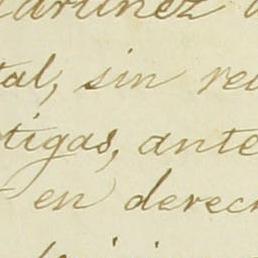 artinez
tal, sin re
tigas, ante
en derec